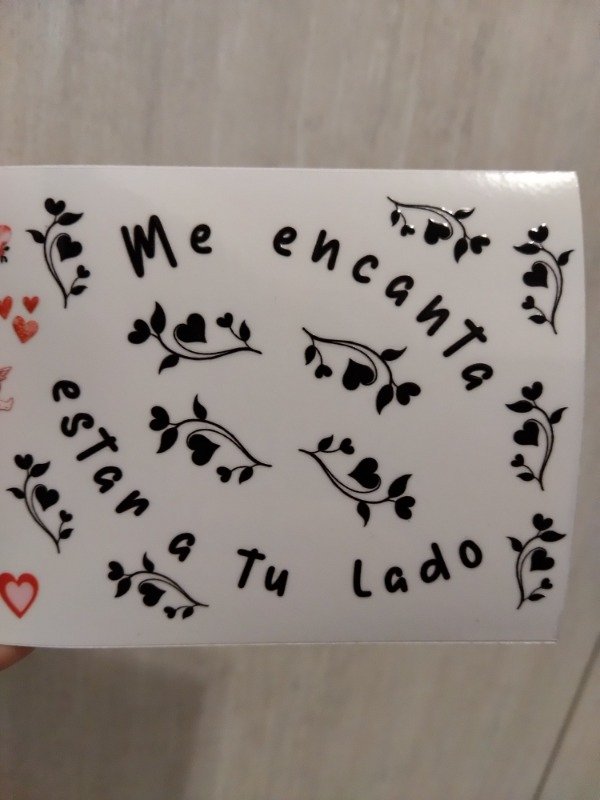 Me encanta
estan a tu lado